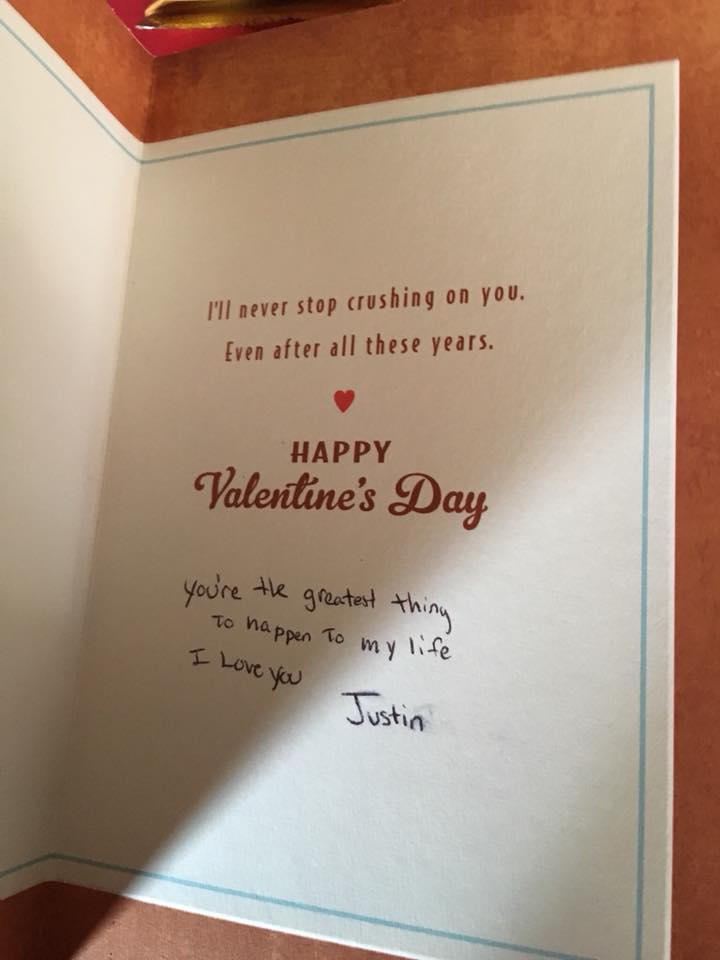 I'll never stop crushing on you.
Even after all these years.
HAPPY
Valentine's Day
you're the greatest thing
To happen To my life
I Love you
Justin